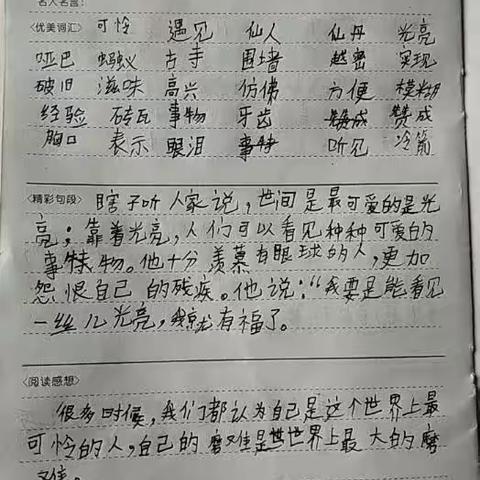 名人名言：
〈优美词汇〉 可怜 遇见 仙人 仙丹 光亮
哑巴 蚂蚁 古寺 围墙 越密 实现
破旧 滋味 高兴 仿佛 方便 模糊
经验 砖瓦 事物 牙齿 赞成 赞成
胸口 表示 眼泪 事特 听见 冷箭
〈精彩句段〉 瞎子听人家说，世间是最可爱的是光
亮；靠着光亮，人们可以看见种种可爱的
事特物。他十分羡慕有眼球的人，更加
怨恨自己的残疾。他说：“我要是能看见
一丝儿光亮，我就有福了。
〈阅读感想〉
很多时候，我们都认为自己是这个世界上最
可怜的人，自己的磨难是世世界上最大的磨
难。